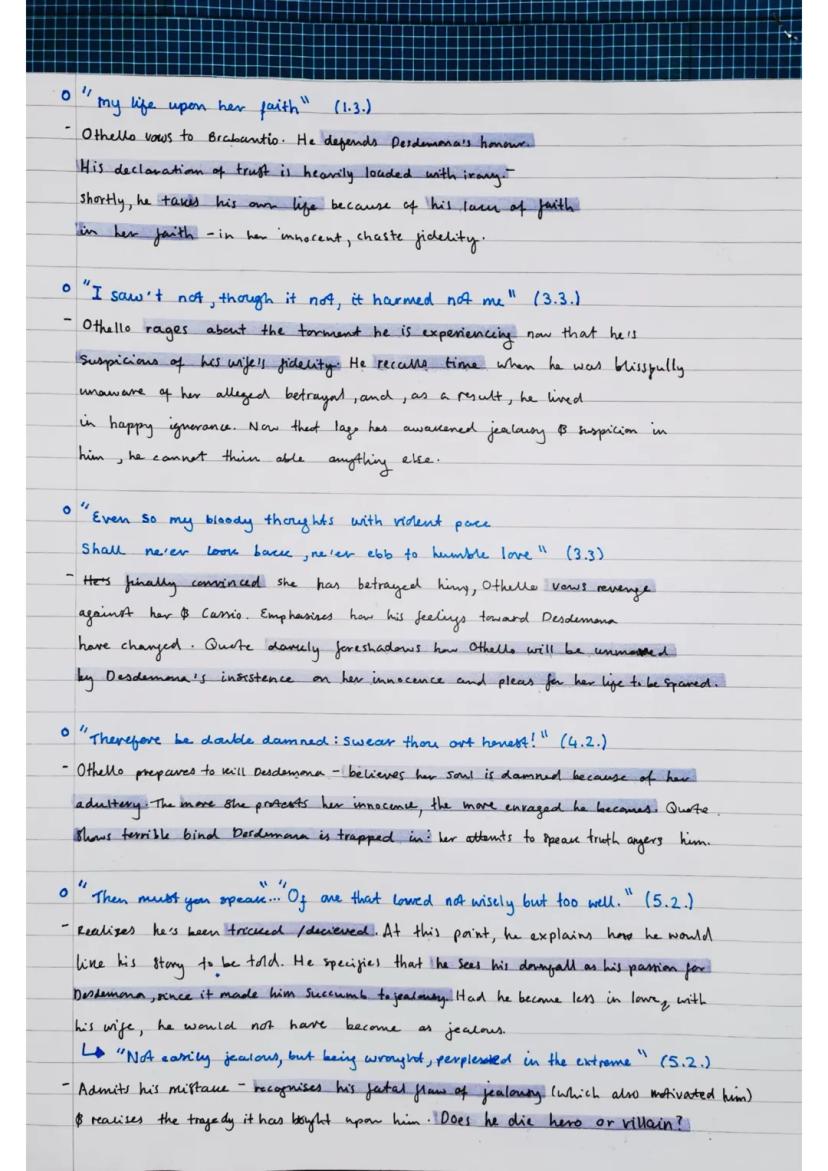 o "My life upon her faith" (1.3.)
- Othello vows to Brabantio. He defends Desdemona's honour.
His declaration of trust is heavily loaded with irony -
shortly, he takes his own life because of his lack of faith
in her faith - in her innocent, chaste fidelity.
o "I saw't not, though it not, it harmed not me" (3.3.)
- Othello rages about the torment he is experiencing now that he's
suspicious of his wife's fidelity. He recalls time when he was blissfully
unaware of her alleged betrayal, and, as a result, he lived
in happy ignorance. Now that Iago has awakened jealousy & suspicion in
him, he cannot think able anything else.
o "Even so my bloody thoughts with violent pace
Shall ne'er look back, ne'er ebb to humble love" (3.3)
- He's finally convinced she has betrayed him, Othello vows revenge
against her & Cassio. Emphasises how his feelings toward Desdemona
have changed. Quote darkly foreshadows how Othello will be unmoved
by Desdemona's insistence on her innocence and pleas for her life to be spared.
o "Therefore be double damned: swear thou art honest!" (4.2.)
- Othello prepares to kill Desdemona - believes her soul is damned because of her
adultery. The more she protests her innocence, the more enraged he becomes. Quote
shows terrible bind Desdemona is trapped in: her attemts to speak truth angers him.
o "Then must you speak"... "Of one that loved not wisely but too well." (5.2.)
- Realises he's been tricked / decieved. At this point, he explains how he would
like his story to be told. He specifies that he sees his downfall as his passion for
Desdemona, since it made him succumb to jealousy. Had he become less in love, with
his wife, he would not have become as jealous.
↳ "Not easily jealous, but being wrought, perplexed in the extreme" (5.2.)
- Admits his mistake - recognises his fatal flaw of jealousy (which also motivated him)
& realises the tragedy it has bought upon him. Does he die hero or villain?